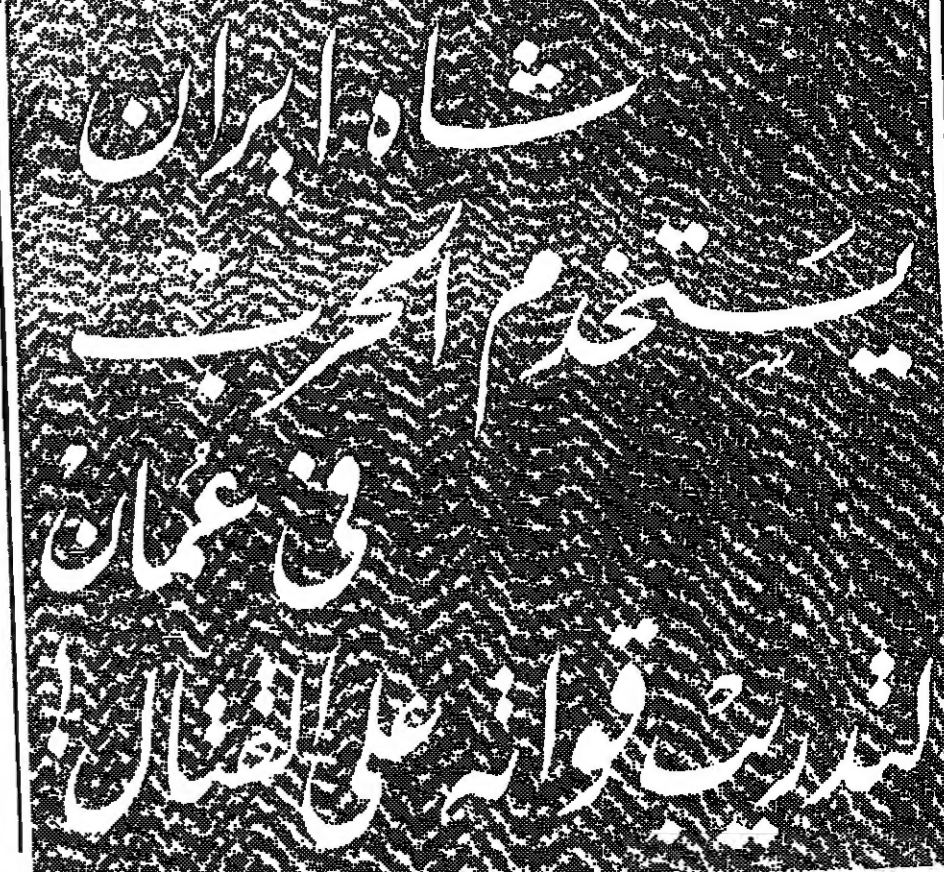 شاه ايران
يستخدم الحرب
في عُمان
لتدريب قواته على القتال!